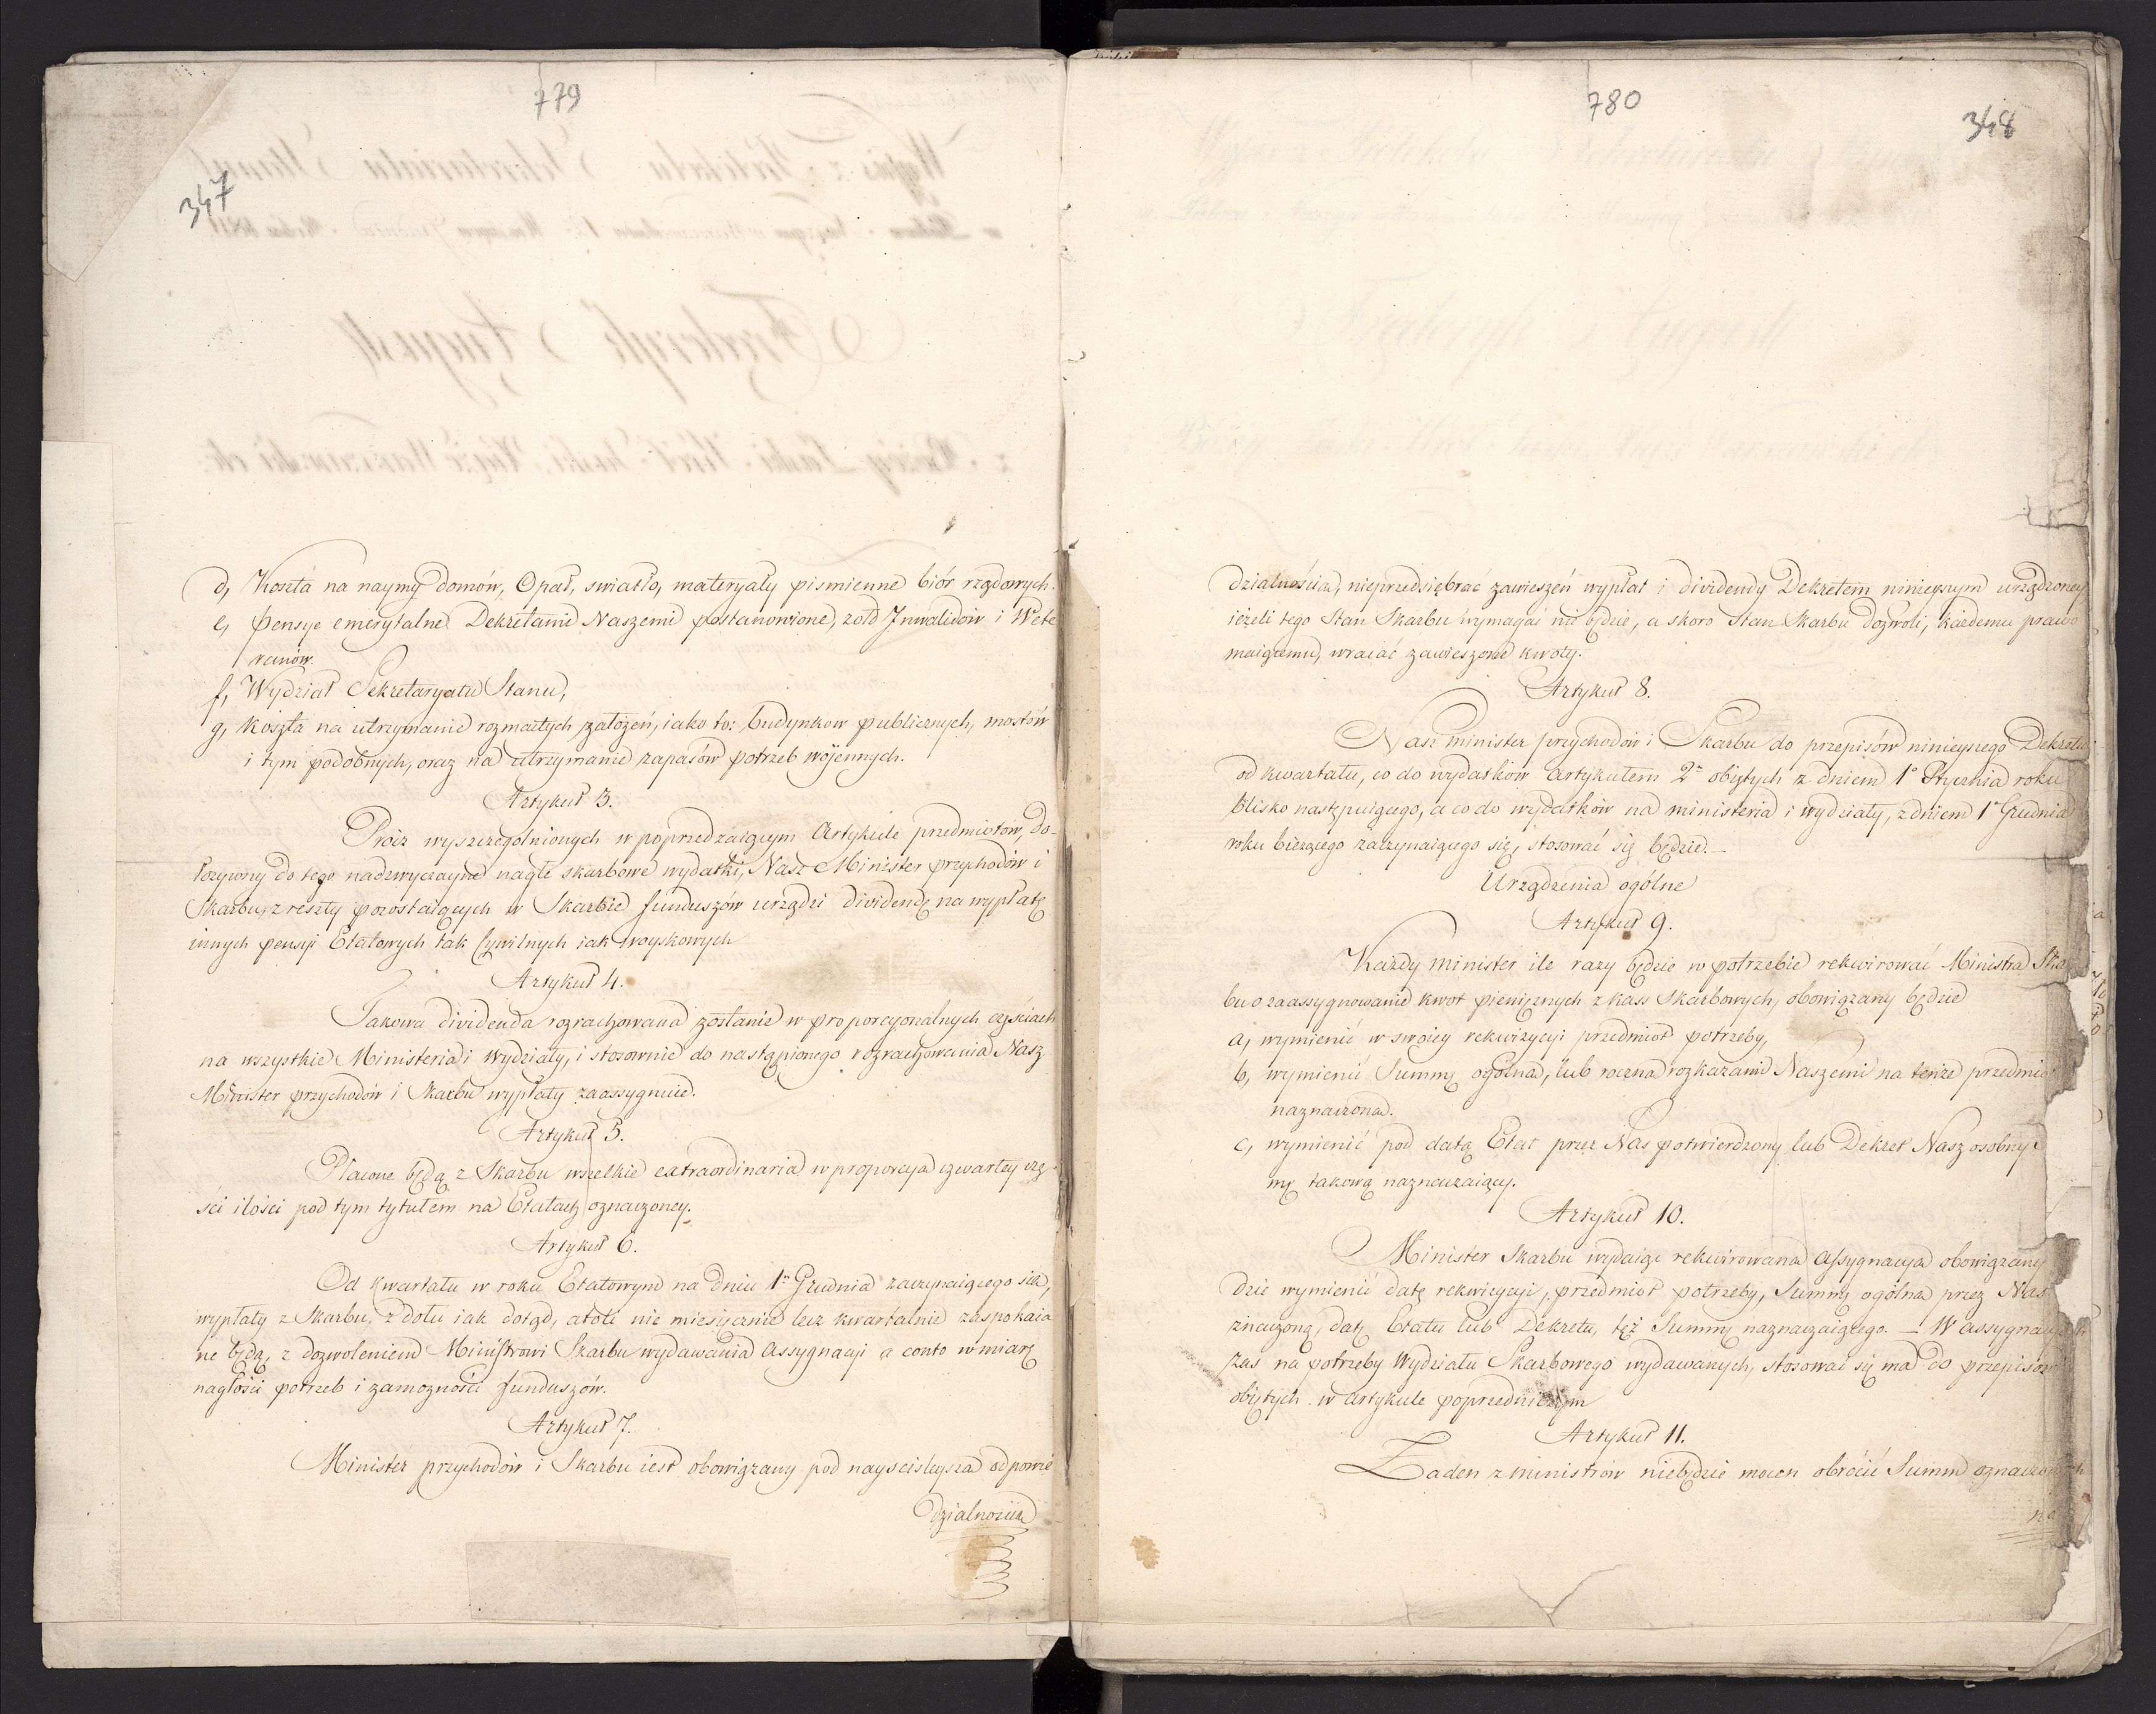 779
347
d, Koszta na naymy domów, Opał, swiatło, materyały pismienne biór rządowych.
e, Pensye emerytalne Dekretami Naszemi postanowione, żołd Inwalidów i Wete
ranów.
f, Wydział Sekretaryatu Stanu,
g, Koszta na utrzymanie rozmaitych założeń, iako to: budynkow publicznych, mostów
i tym podobnych, oraz na utrzymanie zapasów potrzeb woiennych.
Artykuł 3.
Prócz wyszczegolnionych w poprzedzaiącym Artykule przedmiotów, do-
łożywszy do tego nadzwyczayne nagłe skarbowe wydatki, Nasz Minister przychodów i
Skarbu, z reszty pozostaiących w Skarbie funduszów urządzi dividendę na wypłatę
innych pensyi Etatowych tak Cywilnych iak woyskowych
Artykuł 4.
Takowa dividenda rozrachowana zostanie w proporcyonalnych częściach
na wszystkie Ministeria i Wydziały, i stosownie do nastąpionego rozrachowania Nasz
Minister przychodów i Skarbu wypłaty zaassygnuie.
Artykuł 5.
Płacone będą z Skarbu wszelkie extraordinaria w proporcya czwartey czę
ści ilości pod tym tytułem na Etatach oznaczoney.
Artykuł 6.
Od kwartału w roku Etatowym na dniu 1º Grudnia zaczynaiącego sie,
wypłaty z Skarbu, z dołu iak dotąd, atoli nie miesięcznie lecz kwartalnie zaspokaia
ne będą, z dozwoleniem Ministrowi Skarbu wydawania Assygnacyi a conto w miarę
nagłości potrzeb i zamozności funduszów.
Artykuł 7.
Minister przychodów i Skarbu iest obowiązany pod nayscisleysza odpowie
działnościa
780
348
działnościa, nieprzedsiębrać zawieszeń wypłat i dividendy Dekretem ninieyszym urządzoney
ieżeli tego Stan Skarbu wymagać nie będzie, a skoro Stan Skarbu dozwoli, każdemu prawo
maiącemu, wracać zawieszone kwoty.
Artykuł 8.
Nasz minister przychodów i Skarbu do przepisów ninieyszego Dekretu
od kwartału, co do wydatków artykułem 2º obiętych z dniem 1º Stycznia roku
blisko następuiącego, a co do wydatków na ministeria i wydziały, z dniem 1º Grudnia
roku bieżącego zaczynaiącego się, stosować się będzie.—
Urządzenia ogólne
Artykuł 9.
Każdy minister ile razy będzie w potrzebie rekwirować Ministra Skar
bu o zaassygnowanie kwot pieniężnych z kass Skarbowych, obowiązany będzie
a, wymienić w swoiey rekwizycyi przedmiot potrzeby,
b, wymienić Summę ogólna, lub roczna rozkazami Naszemi na tenże przedmiot
naznaczona.
c, wymienić pod datą Etat przez Nas potwierdzony lub Dekret Nasz osobny
mę takową naznaczaiący.
Artykuł 10.
Minister Skarbu wydaiąc rekwirowana Assygnacya obowiązany
dzie wymienić datę rekwizycyi, przedmiot potrzeby, Summę ogólna przez Nas
znaczoną, datę Etatu lub Dekretu, też Summę naznaczaiącego. — W assygna
zas na potrzeby Wydziału Skarbowego wydawanych, stosować się ma do przepisów
obiętych w artykule poprzedniczym
Artykuł 11.
Zaden z ministrów niebędzie mocen obrócić Summ oznaczonych
na